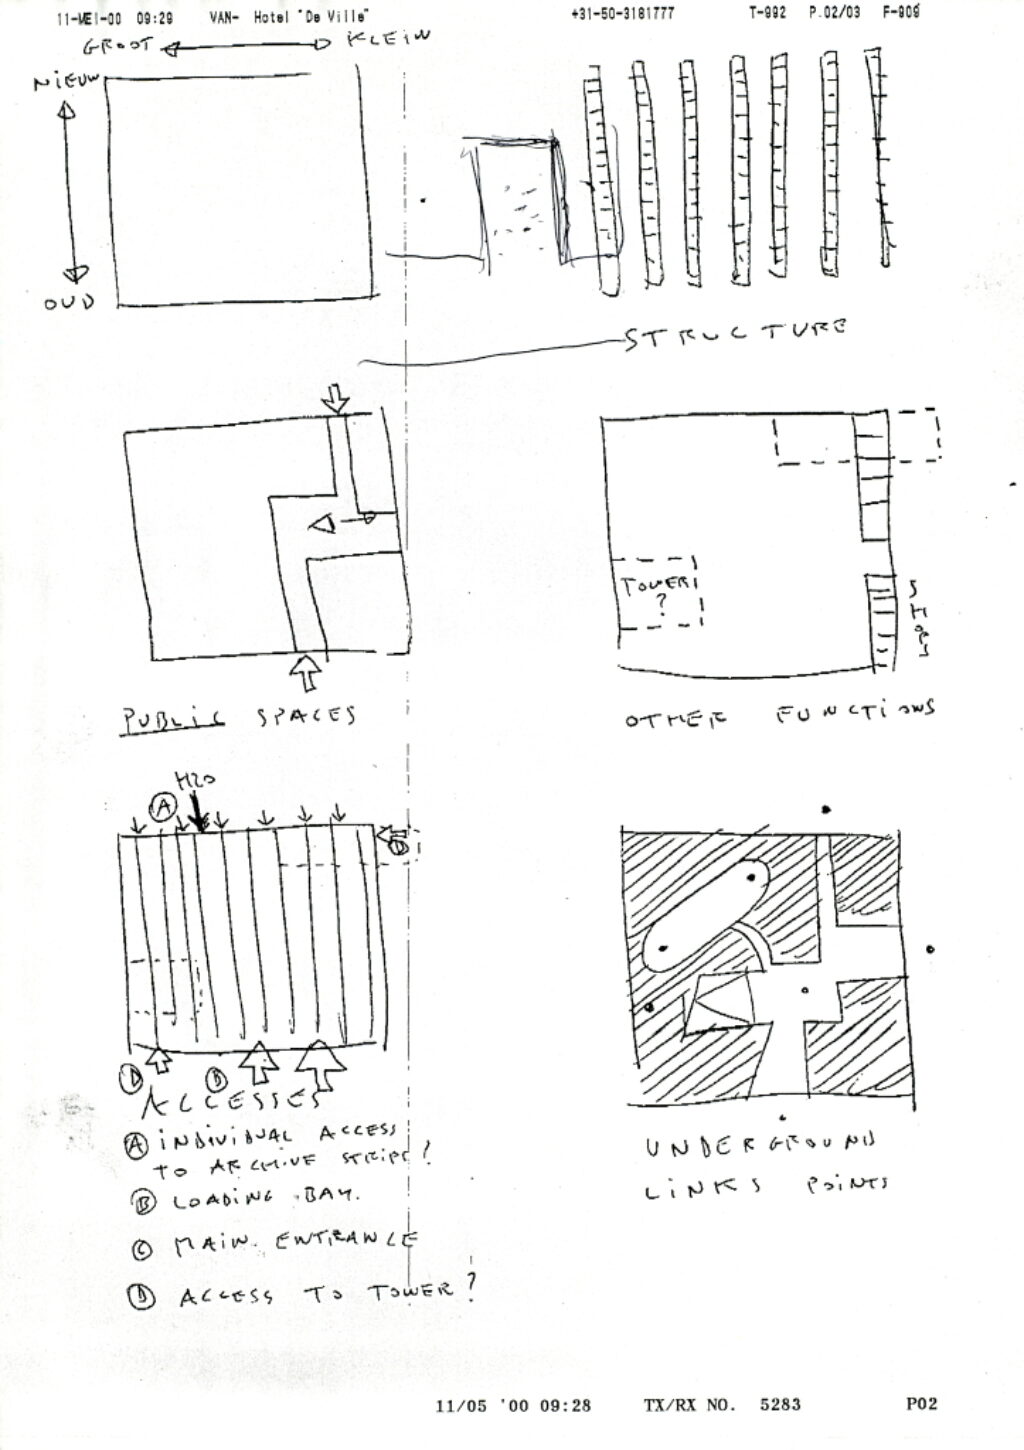 11-MEI-00 09:29 VAN- Hotel "De Ville" +31-50-3181777 T-992 P.02/03 F-909
GROOT KLEIN
NIEUW
OUD
STRUCTURE
TOWER
?
SHOPS
PUBLIC SPACES
OTHER FUNCTIONS
H2O
A
D
D
B
ACCESSES
A INDIVIDUAL ACCESS
TO ARCHIVE STRIPS?
B LOADING BAY.
C MAIN ENTRANCE
D ACCESS TO TOWER?
UNDERGROUND
LINKS POINTS
11/05 '00 09:28 TX/RX NO. 5283 P02